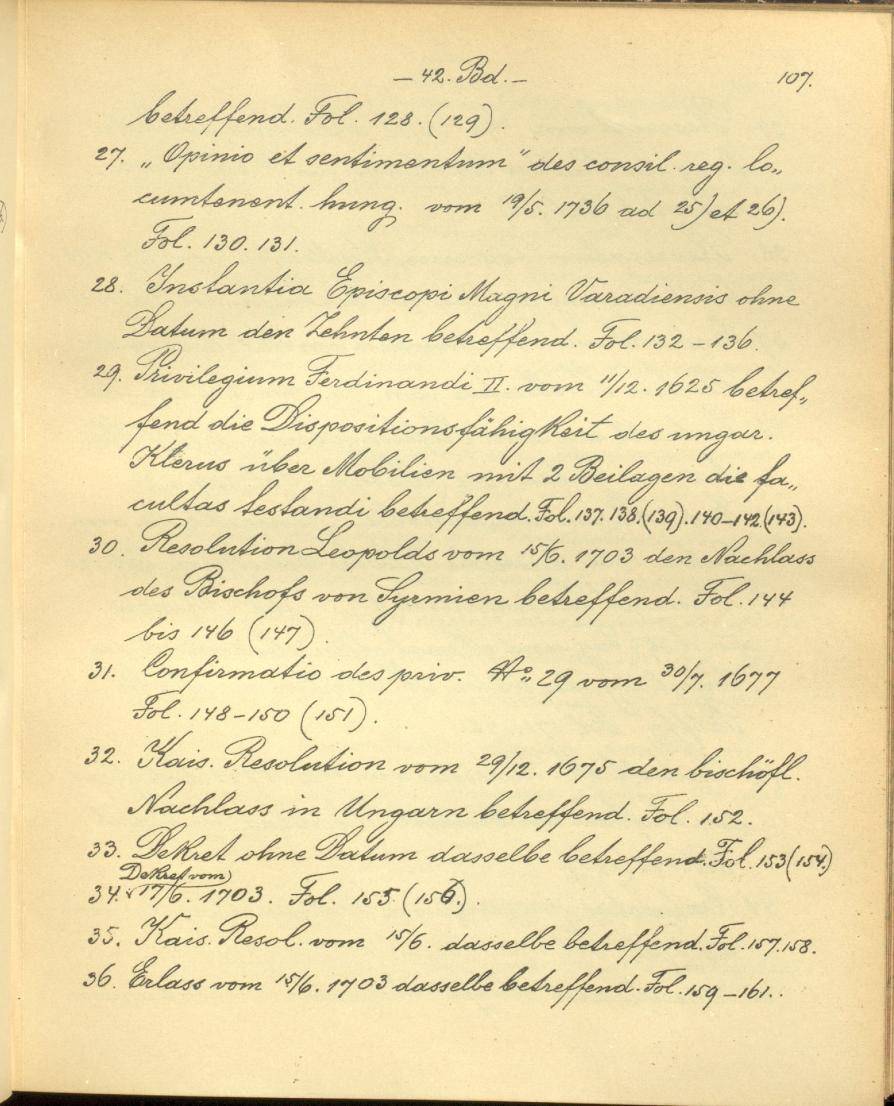 – 42. Bd. –
107.
betreffend. Fol. 128. (129).
27. „Opinio et sentimentum" des consil. reg. lo„
cumtenent. hung. vom 19/5. 1736 ad 25) et 26).
Fol. 130. 131.
28. Instantia Episcopi Magni Varadiensis ohne
Datum den Zehnten betreffend. Fol. 132 – 136.
29. Privilegium Ferdinandi II. vom 11/12. 1625 betref„
fend die Dispositionsfähigkeit des ungar.
Klerus über Mobilien mit 2 Beilagen die fa„
cultas testandi betreffend. Fol. 137. 138. (139). 140–142. (143).
30. Resolution Leopolds vom 15/6. 1703 den Nachlass
des Bischofs von Syrmien betreffend. Fol. 144
bis 146 (147).
31. Confirmatio des priv. No 29 vom 30/7. 1677
Fol. 148–150 (151).
32. Kais. Resolution vom 29/12. 1675 den bischöfl.
Nachlass in Ungarn betreffend. Fol. 152.
33. Dekret ohne Datum dasselbe betreffend. Fol. 153 (154.)
Dekret vom
34. 17/6. 1703. Fol. 155 (156.).
35. Kais. Resol. vom 15/6. dasselbe betreffend. Fol. 157. 158.
36. Erlass vom 15/6. 1703 dasselbe betreffend. Fol. 159 – 161.